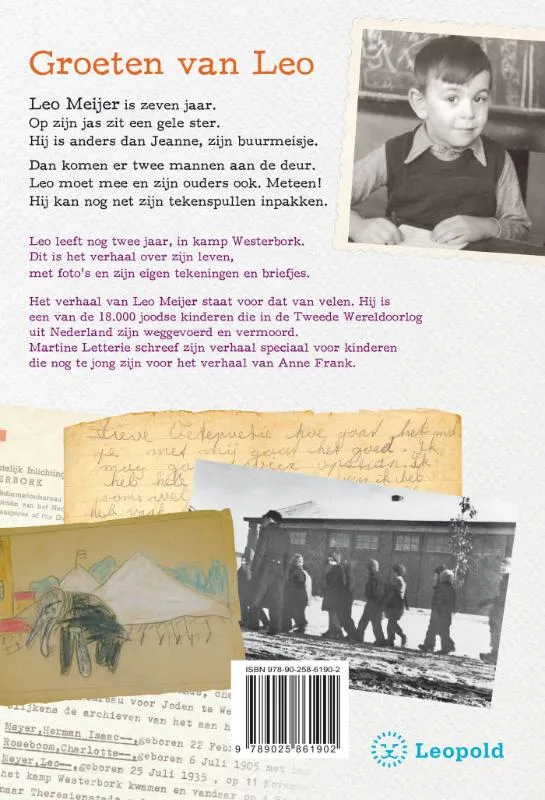 Groeten van Leo
Leo Meijer is zeven jaar.
Op zijn jas zit een gele ster.
Hij is anders dan Jeanne, zijn buurmeisje.
Dan komen er twee mannen aan de deur.
Leo moet mee en zijn ouders ook. Meteen!
Hij kan nog net zijn tekenspullen inpakken.
Leo leeft nog twee jaar, in kamp Westerbork.
Dit is het verhaal over zijn leven,
met foto's en zijn eigen tekeningen en briefjes.
Het verhaal van Leo Meijer staat voor dat van velen. Hij is
een van de 18.000 joodse kinderen die in de Tweede Wereldoorlog
uit Nederland zijn weggevoerd en vermoord.
Martine Letterie schreef zijn verhaal speciaal voor kinderen
die nog te jong zijn voor het verhaal van Anne Frank.
hoe gaat het met
je met mij gaat het goed. Ik
telijk Inlichting
ERBORK
Informationbureau
auspices of the Du
ISBN 978-90-258-6190-2
9 789025 861902
Leopold
bureau voor Joden te We
elijkens de archieven van het aan h
Meyer,Herman Isaac--,geboren 22 Feb
Roseboom,Charlotte--,geboren 6 Juli 1905 met
Meyer,Leo--,geboren 25 Juli 1935 , op 11 November
het kamp Westerbork kwamen en vandaar op
naar Theresienstadt